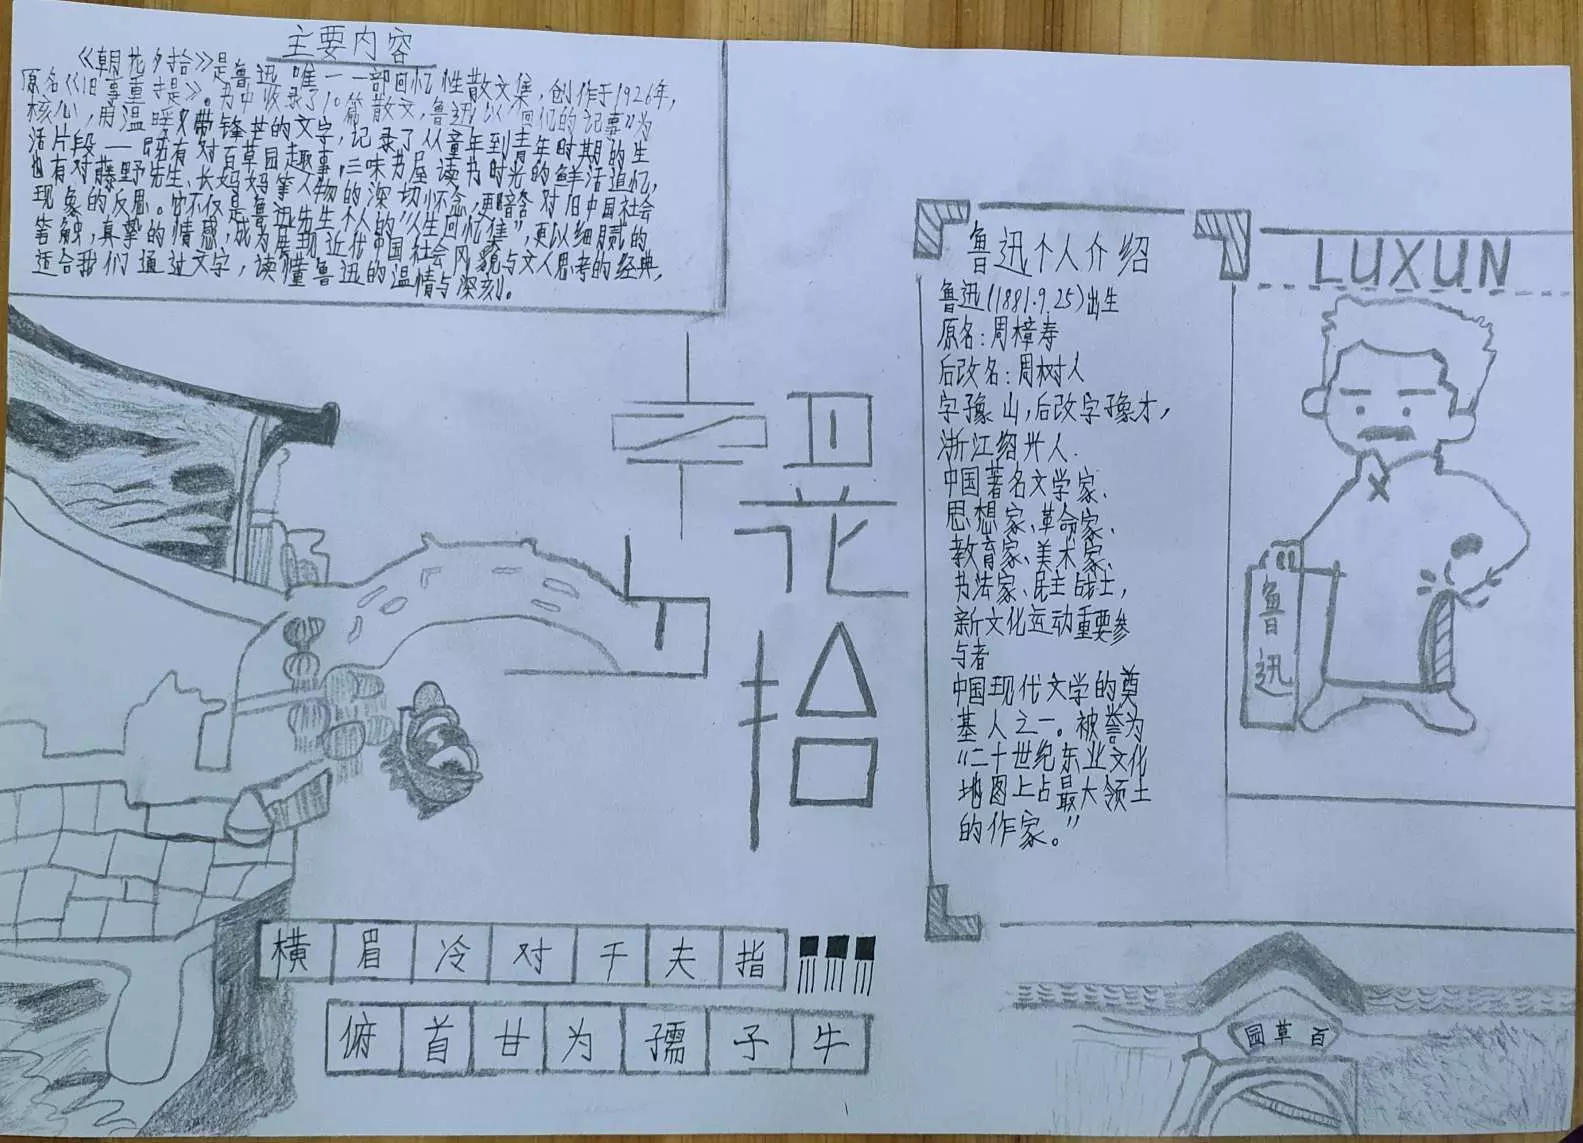 主要内容
《朝花夕拾》是鲁迅唯一一部回忆性散文集,创作于1926年,
原名《旧事重提》。书中收录了10篇散文,鲁迅以"回忆的记事"为
核心,用温暖又带锋芒的文字,记录了从童年到青年时期的生
活片段——既有对百草园趣事,三味书屋读书时光的鲜活追忆,
也有对藤野先生、长妈妈等人物的深切怀念,更暗含对旧中国社会
现象的反思。它不仅是鲁迅先生个人的"人生回忆集",更以细腻的
笔触,真挚的情感,成为展现近代中国社会风貌与文人思考的经典,
适合我们通过文字,读懂鲁迅的温情与深刻。
朝花夕拾
鲁迅个人介绍
鲁迅(1881.9.25)出生
原名:周樟寿
后改名:周树人
字豫山,后改字豫才,
浙江绍兴人.
中国著名文学家、
思想家、革命家、
教育家、美术家、
书法家、民主战士,
新文化运动重要参
与者
中国现代文学的奠
基人之一。被誉为
"二十世纪东亚文化
地图上占最大领土
的作家。"
LUXUN
鲁迅
横眉冷对千夫指
俯首甘为孺子牛
园草百